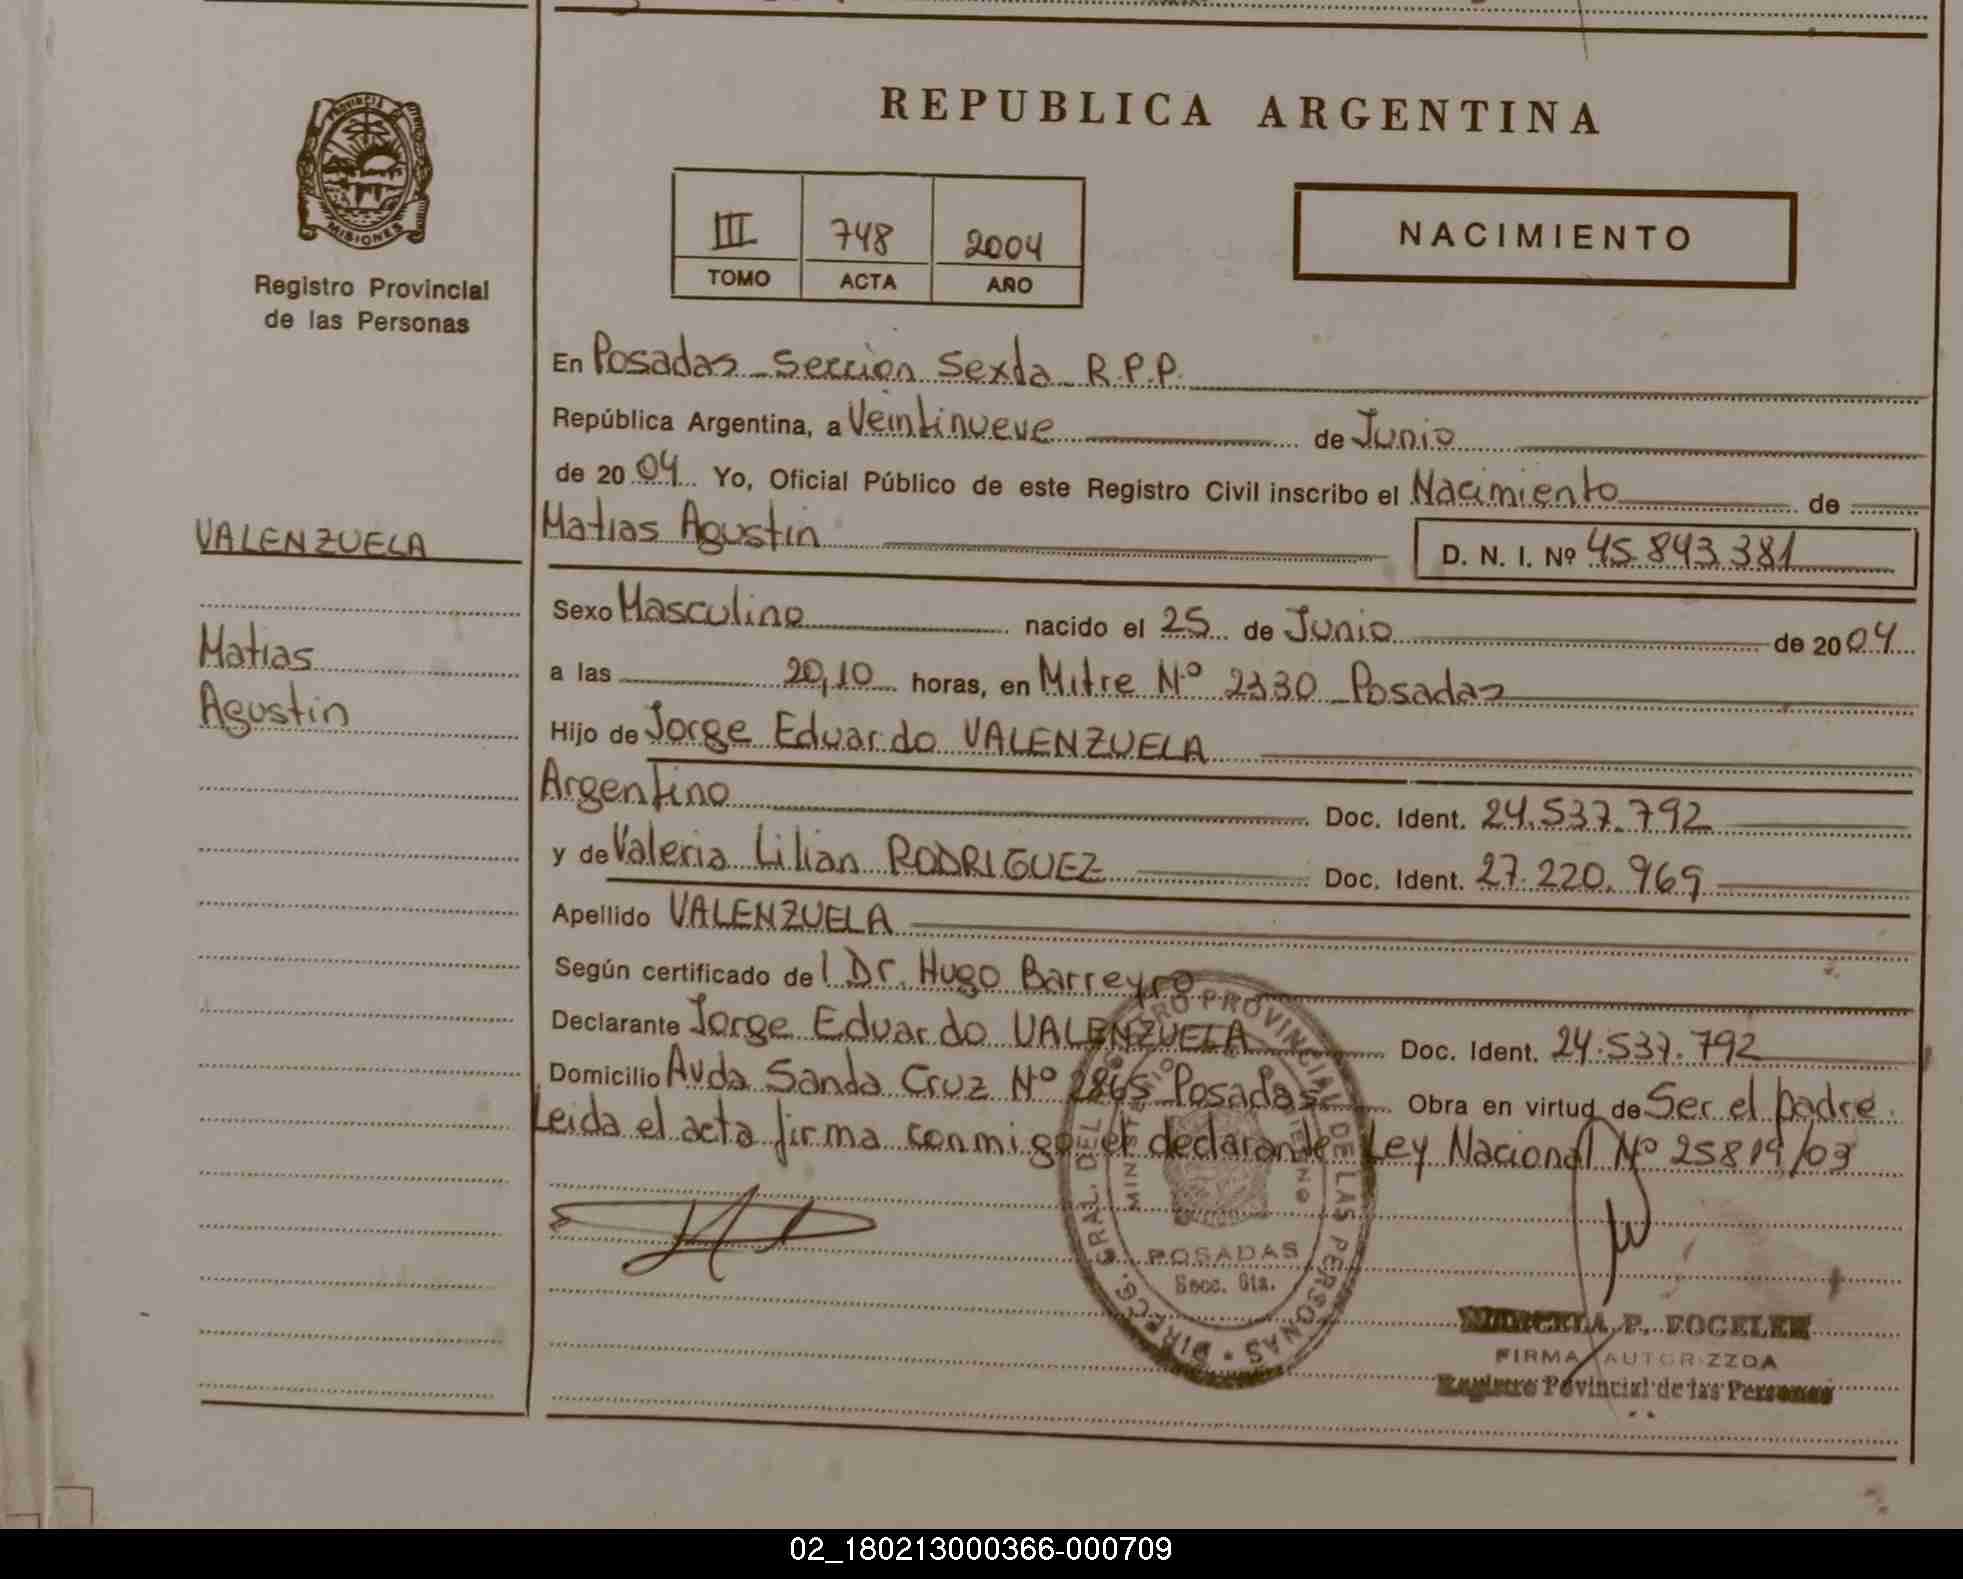 REPUBLICA ARGENTINA
PROVINCIA DE
MISIONES
Registro Provincial
de las Personas
III 748 2004
TOMO ACTA AÑO
NACIMIENTO
En Posadas - Sección Sexta R.P.P.
República Argentina, a Veintinueve de Junio
de 2004 Yo, Oficial Público de este Registro Civil inscribo el Nacimiento de
VALENZUELA
Matias Agustin D. N. I. Nº 45.843.381
Sexo Masculino nacido el 25 de Junio de 2004
Matias
Agustin
a las 20,10 horas, en Mitre Nº 2330 - Posadas
Hijo de Jorge Eduardo VALENZUELA
Argentino Doc. Ident. 24.537.792
y de Valeria Lilian RODRIGUEZ Doc. Ident. 27.220.969
Apellido VALENZUELA
Según certificado del Dr. Hugo Barreyro
Declarante Jorge Eduardo VALENZUELA Doc. Ident. 24.537.792
Domicilio Avda Santa Cruz Nº 2865 - Posadas Obra en virtud de Ser el padre.
Leida el acta firma conmigo el declarante Ley Nacional Nº 25819/03
DIRECC. GRAL. DEL REGISTRO PROVINCIAL DE LAS PERSONAS
POSADAS
Secc. 6ta.
P. FOGELER
FIRMA AUTORIZZDA
Registro Povincial de las Personas
02_180213000366-000709